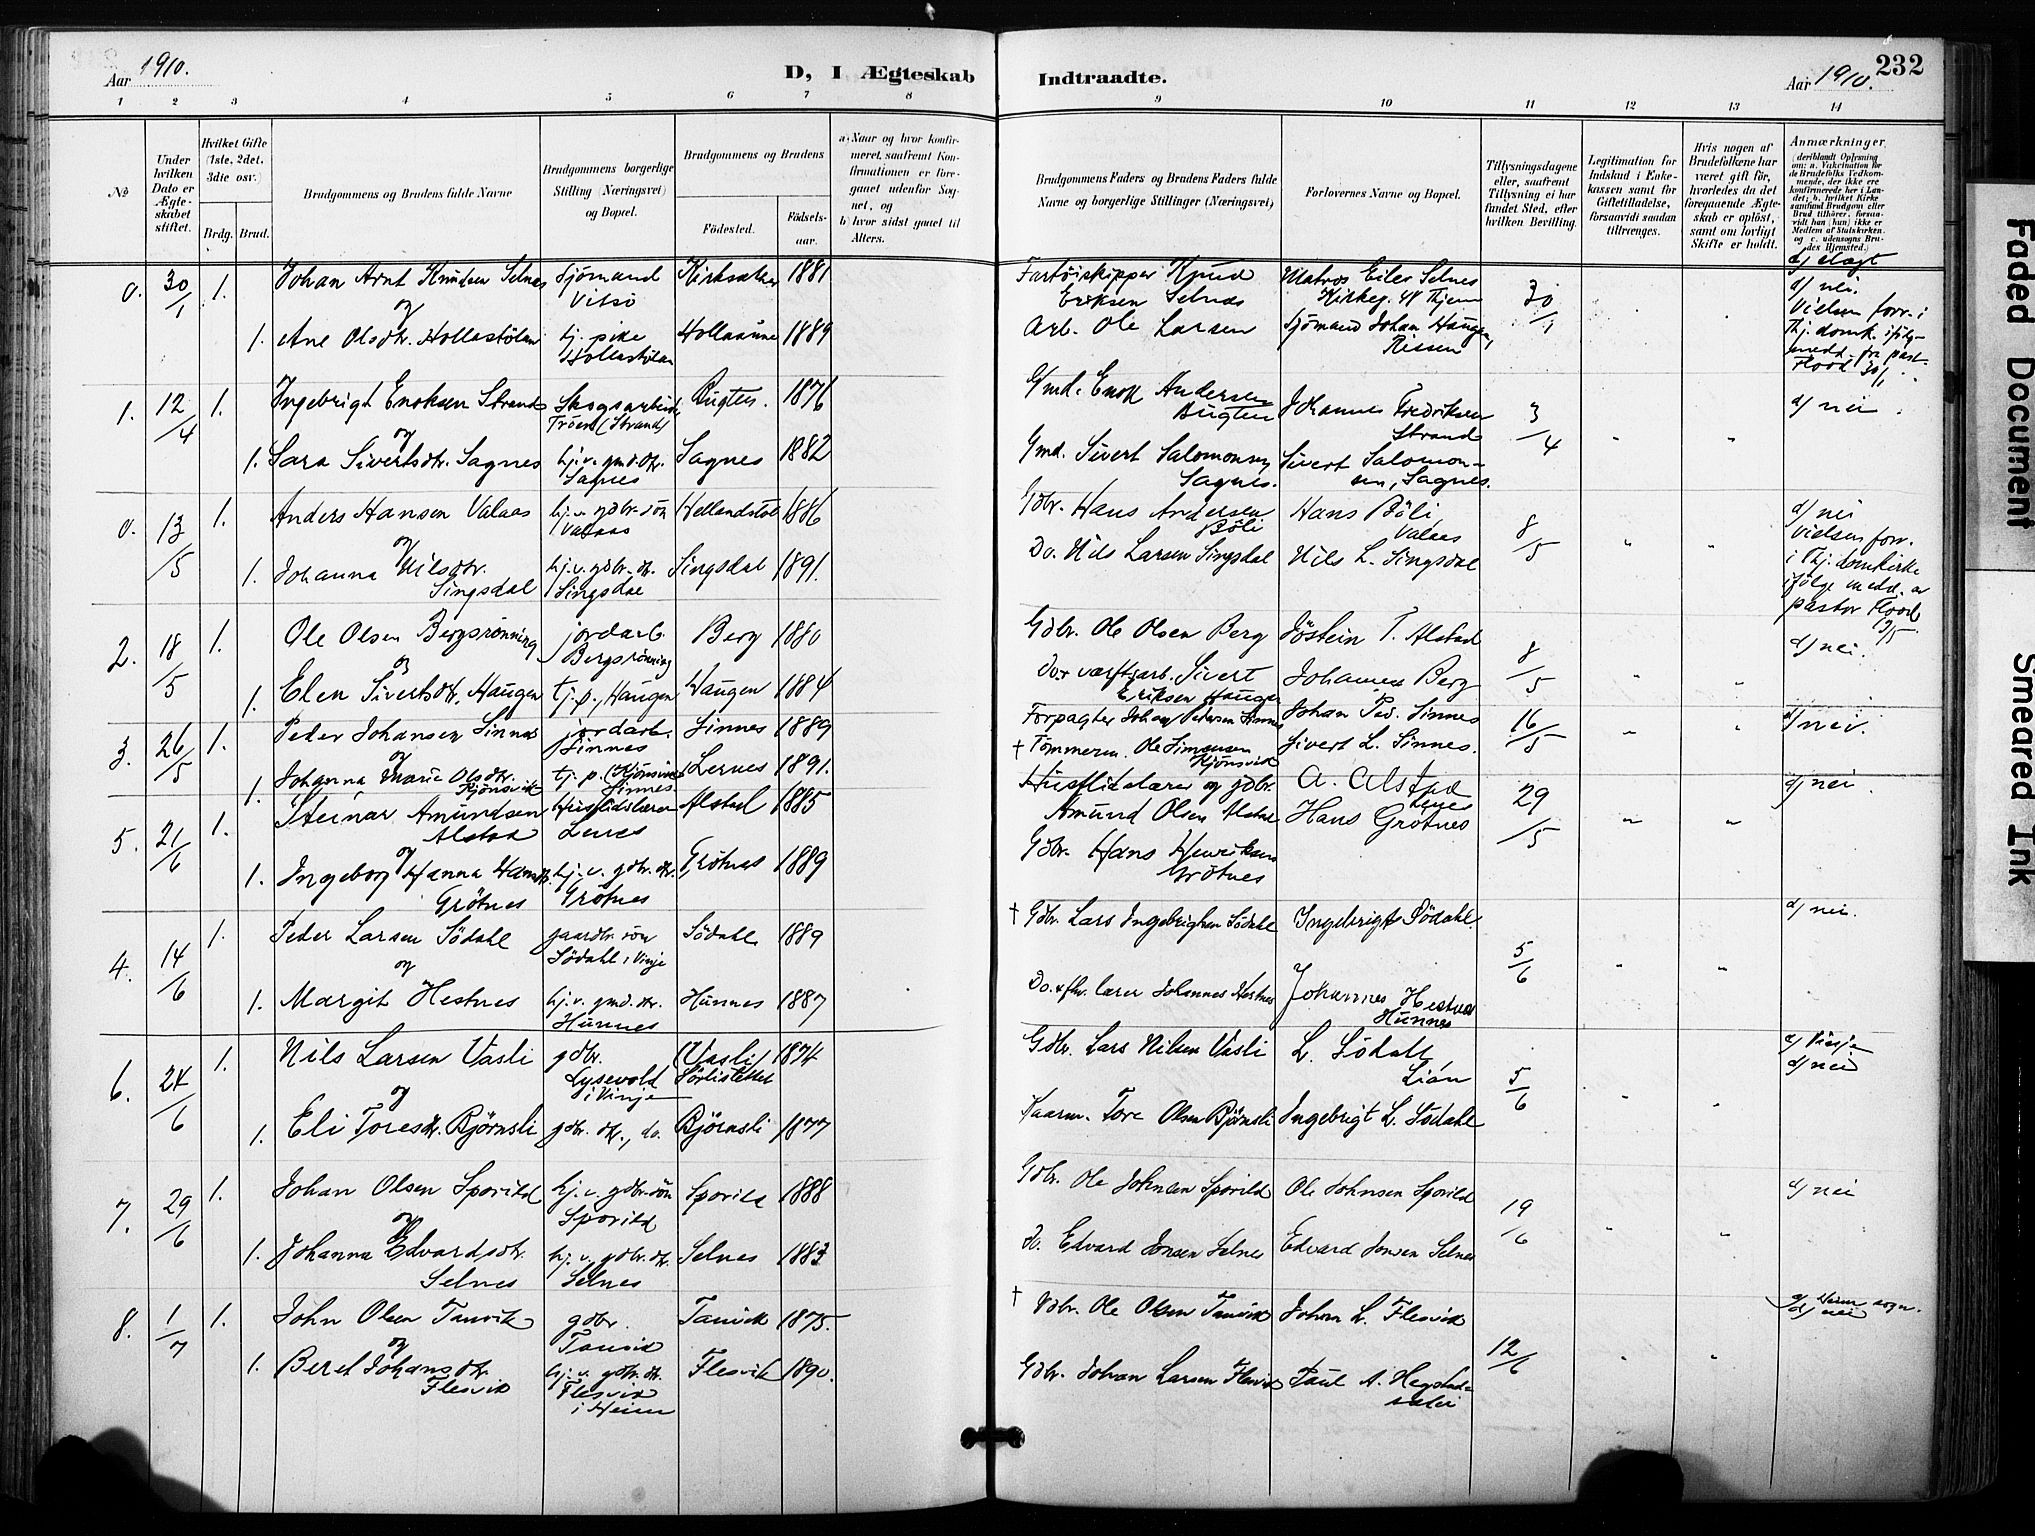 232
Aar 1910.
D, I Ægteskab
Indtraadte.
Aar 1910.
1 2 3 4 5 6 7 8 9 10 11 12 13 14
№
Under hvilken Dato er Ægteskabet stiftet.
Hvilket Gifte (1ste, 2det, 3die osv.)
Brdg. Brud.
Brudgommens og Brudens fulde Navne
Brudgommens borgerlige Stilling (Næringsvei) og Bopæl.
Brudgommens og Brudens
Födested.
Födselsaar.
a) Naar og hvor konfirmeret, saafremt Konfirmationen er foregaaet udenfor Sognet, og
b) hvor sidst gaaet til Alters.
Brudgommens Faders og Brudens Faders fulde Navne og borgerlige Stillinger (Næringsvei)
Forlovernes Navne og Bopæl.
Tillysningsdagene eller, saafremt Tillysning ei har fundet Sted, efter hvilken Bevilling.
Legitimation for Indskud i Enkekassen samt for Giftetilladelse, forsaavidt saadan tiltrænges.
Hvis nogen af Brudefolkene har været gift för, hvorledes da det foregaaende Ægteskab er oplöst, samt om lovligt Skifte er holdt.
Anmærkninger
(deriblandt Oplysning om: a. Vakcination for de Brudefolks Vedkommende, der ikke ere konfirmerede her i Landet; b. hvilket Kirkesamfund Brudgom eller Brud tilhörer, forsaavidt han (hun) ikke er Medlem af Statskirken, og c. udensogns Brudes Hjemsted.)
0. 30/1 1. Johan Arnt Knudsen Selnes Sjømand Kirksæter 1881 Fartöiskipper Knud Matros Eiler Selnes 30/1 d/ nei.
og Eriksen Selnæs
1. Ane Olsdtr. Hollastölan tj. pike Hollaaune 1889 Arb. Ole Larsen Sjömand Johan Haugen, Vielsen forr. i
Hollastölan Rissen
1. 12/4 1. Ingebrigt Enoksen Strand Skogsarbeid. Bugten. 1876 Gmd. Enok Andersen Johannes Fredriksen 3/4 d/ nei.
og Tröen (Strand) Bugten Strand
1. Sara Sivertsdtr. Sagnes hj.v. gmd.dtr. Sagnes 1882 Gmd. Sivert Salomonsen Sivert Salomon-
Sagnes Sagnes. sen, Sagnes.
0. 13/5 1. Anders Hansen Valaas hj.v. gdbr. sön 1886 Gdbr. Hans Andersen Hans Böli 8/5 d/ nei
og Valaas Böli Valaas Vielsen forr.
1. Johanna Nilsdtr. hj.v. gdbr. dtr. Singsdal 1891. Do. Nils Larsen Singsdal Nils L. Singsdal i Thj. domkirke
Singsdal Singsdal ifölge medd. av
pastor Flood
2. 18/5 1. Ole Olsen Bergsrönning jordarb. Berg 1880 Gdbr. Ole Olsen Berg Jöstein T. Alstad 8/5 d/ nei.
og Bergsrönning
1. Elen Sivertsdtr. Haugen tj. p., Haugen Haugen 1884 Do. værftsarb. Sivert Johannes Berg
Eriksen Haugen
3. 26/5 1. Peder Johansen Sinnes jordarb. Sinnes 1889 Forpagter Johan Pedersen Sinnes Johan Ped. Sinnes 16/5 d/ nei.
og Sinnes
1. Johanna Marie Olsdtr. Lernes 1891. † Tömmerm. Ole Simonsen Sivert L. Sinnes.
Kjönsvik Sinnes Kjönsvik
5. 21/6 1. Steinar Amundsen Husflidslærer Alstad 1885 Husflidslærer og gdbr. A. Alstad 29/5 d/ nei.
Alstad Lenes Amund Olsen Alstad Lenes
og
1. Ingeborg Hanna Hansdtr. hj.v. gdbr. dtr. Grötnes 1889 Gdbr. Hans Henriksen Hans Grötnes
Grötnes Grötnes Grötnes
4. 14/6 1. Peder Larsen Södahl gaardbr. sön Södahl 1889 † Gdbr. Lars Ingebrigtsen Södahl Ingebrigt Södahl. 5/6 d/ nei.
og Södahl i Vinje
1. Margit Hestnes hj.v. gmd. dtr. Hunnes 1887 Do. lærer Johannes Hestnes Johannes Hestnes
Hunnes Hunnes
6. 24/6 1. Nils Larsen Vasli gdbr. (Vasli) 1874 Gdbr. Lars Nilsen Vasli L. Södahl, 5/6 Vinje
og Lysevold Lian d/ nei
i Vinje
1. Eli Toresdtr. Bjørnsli gdbr. dtr., do. Bjørnsli 1877 Tore Olsen Bjørnsli Ingebrigt L. Södahl
7. 29/6 1. Johan Olsen Sporild hj.v. gdbr. sön Sporild 1888 Gdbr. Ole Johnsen Sporild Ole Johnsen Sporild 19/6 d/ nei
og Sporild
1. Johanna Edvardsdtr. hj.v. gdbr. dtr. Selnes 1883 Do. Edvard Jonsen Selnes Edvard Jonsen Selnes
Selnes Selnes
8. 1/7 1. John Olsen Tanvik gdbr. Tanvik 1875. † Gdbr. Ole Olsen Tanvik Johan L. Flesvik 12/6 Heim sogn.
og Tanvik d/ nei
1. Beret Johansdtr. hj.v. gdbr. dtr. Flesvik 1890. Gdbr. Johan Larsen Flesvik Paul A. Hegstad-
Flesvik Flesvik
i Heim
Faded Document
Smeared Ink